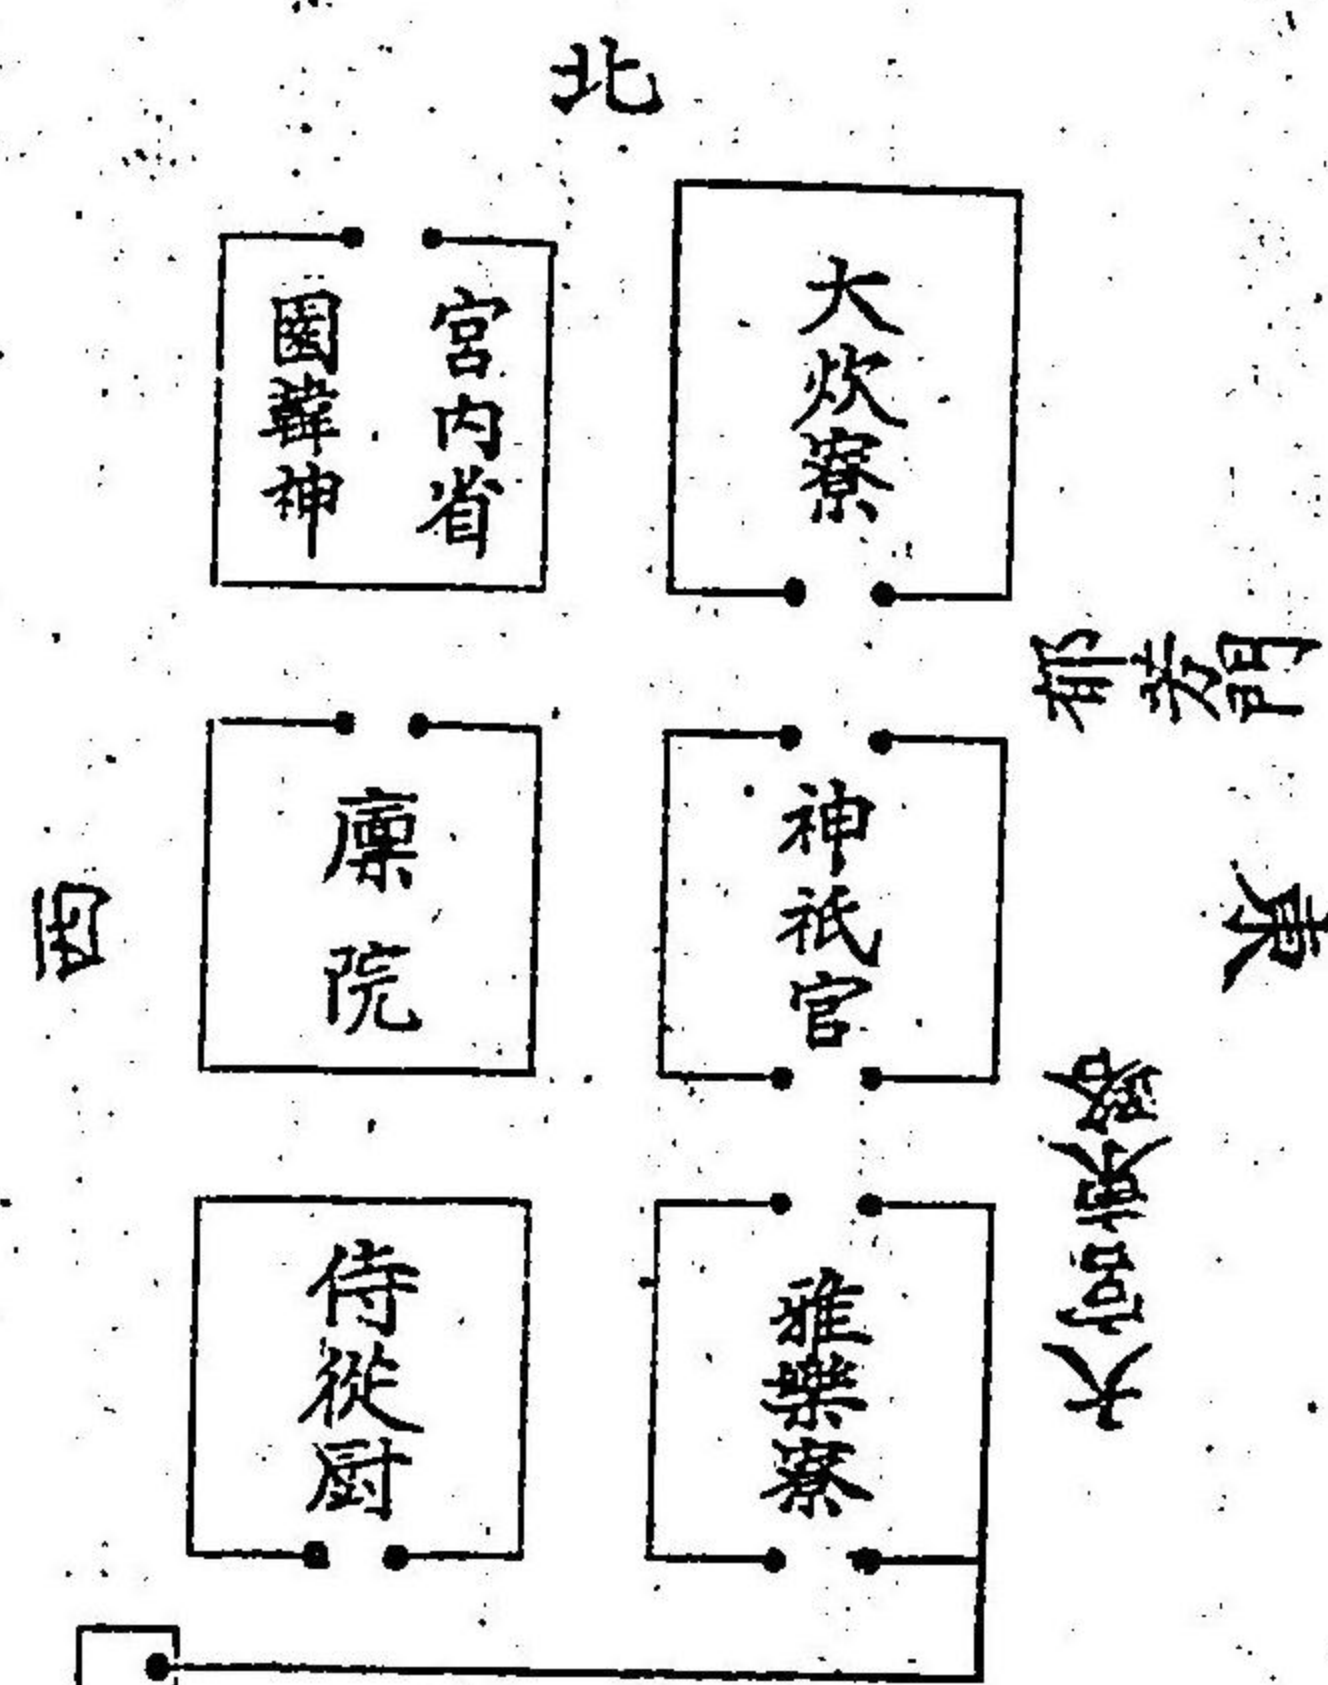 北
大炊寮
宮内省
園韓神
郁芳門
東
神祇官
廩院
西
雅樂寮
侍從厨